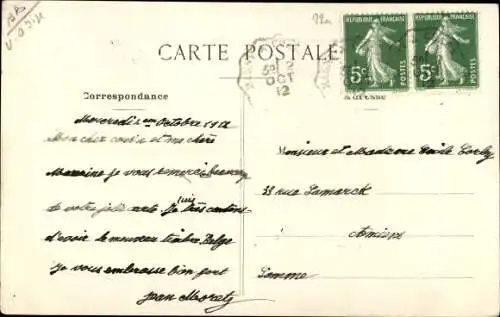 CARTE POSTALE
RÉPUBLIQUE FRANÇAISE
5c
POSTES
RÉPUBLIQUE FRANÇAISE
5c
POSTES
2
OCT
12
Correspondance
Mercredi 2 Octobre 1912
Mon cher cousin et ma chère
Marraine je vous remercie beaucoup
de votre jolie carte je suis très content
d'avoir le nouveau timbre Belge
Je vous embrasse bien fort
Jean
Monsieur et Madame
33 rue Lamarck
Amiens
Somme